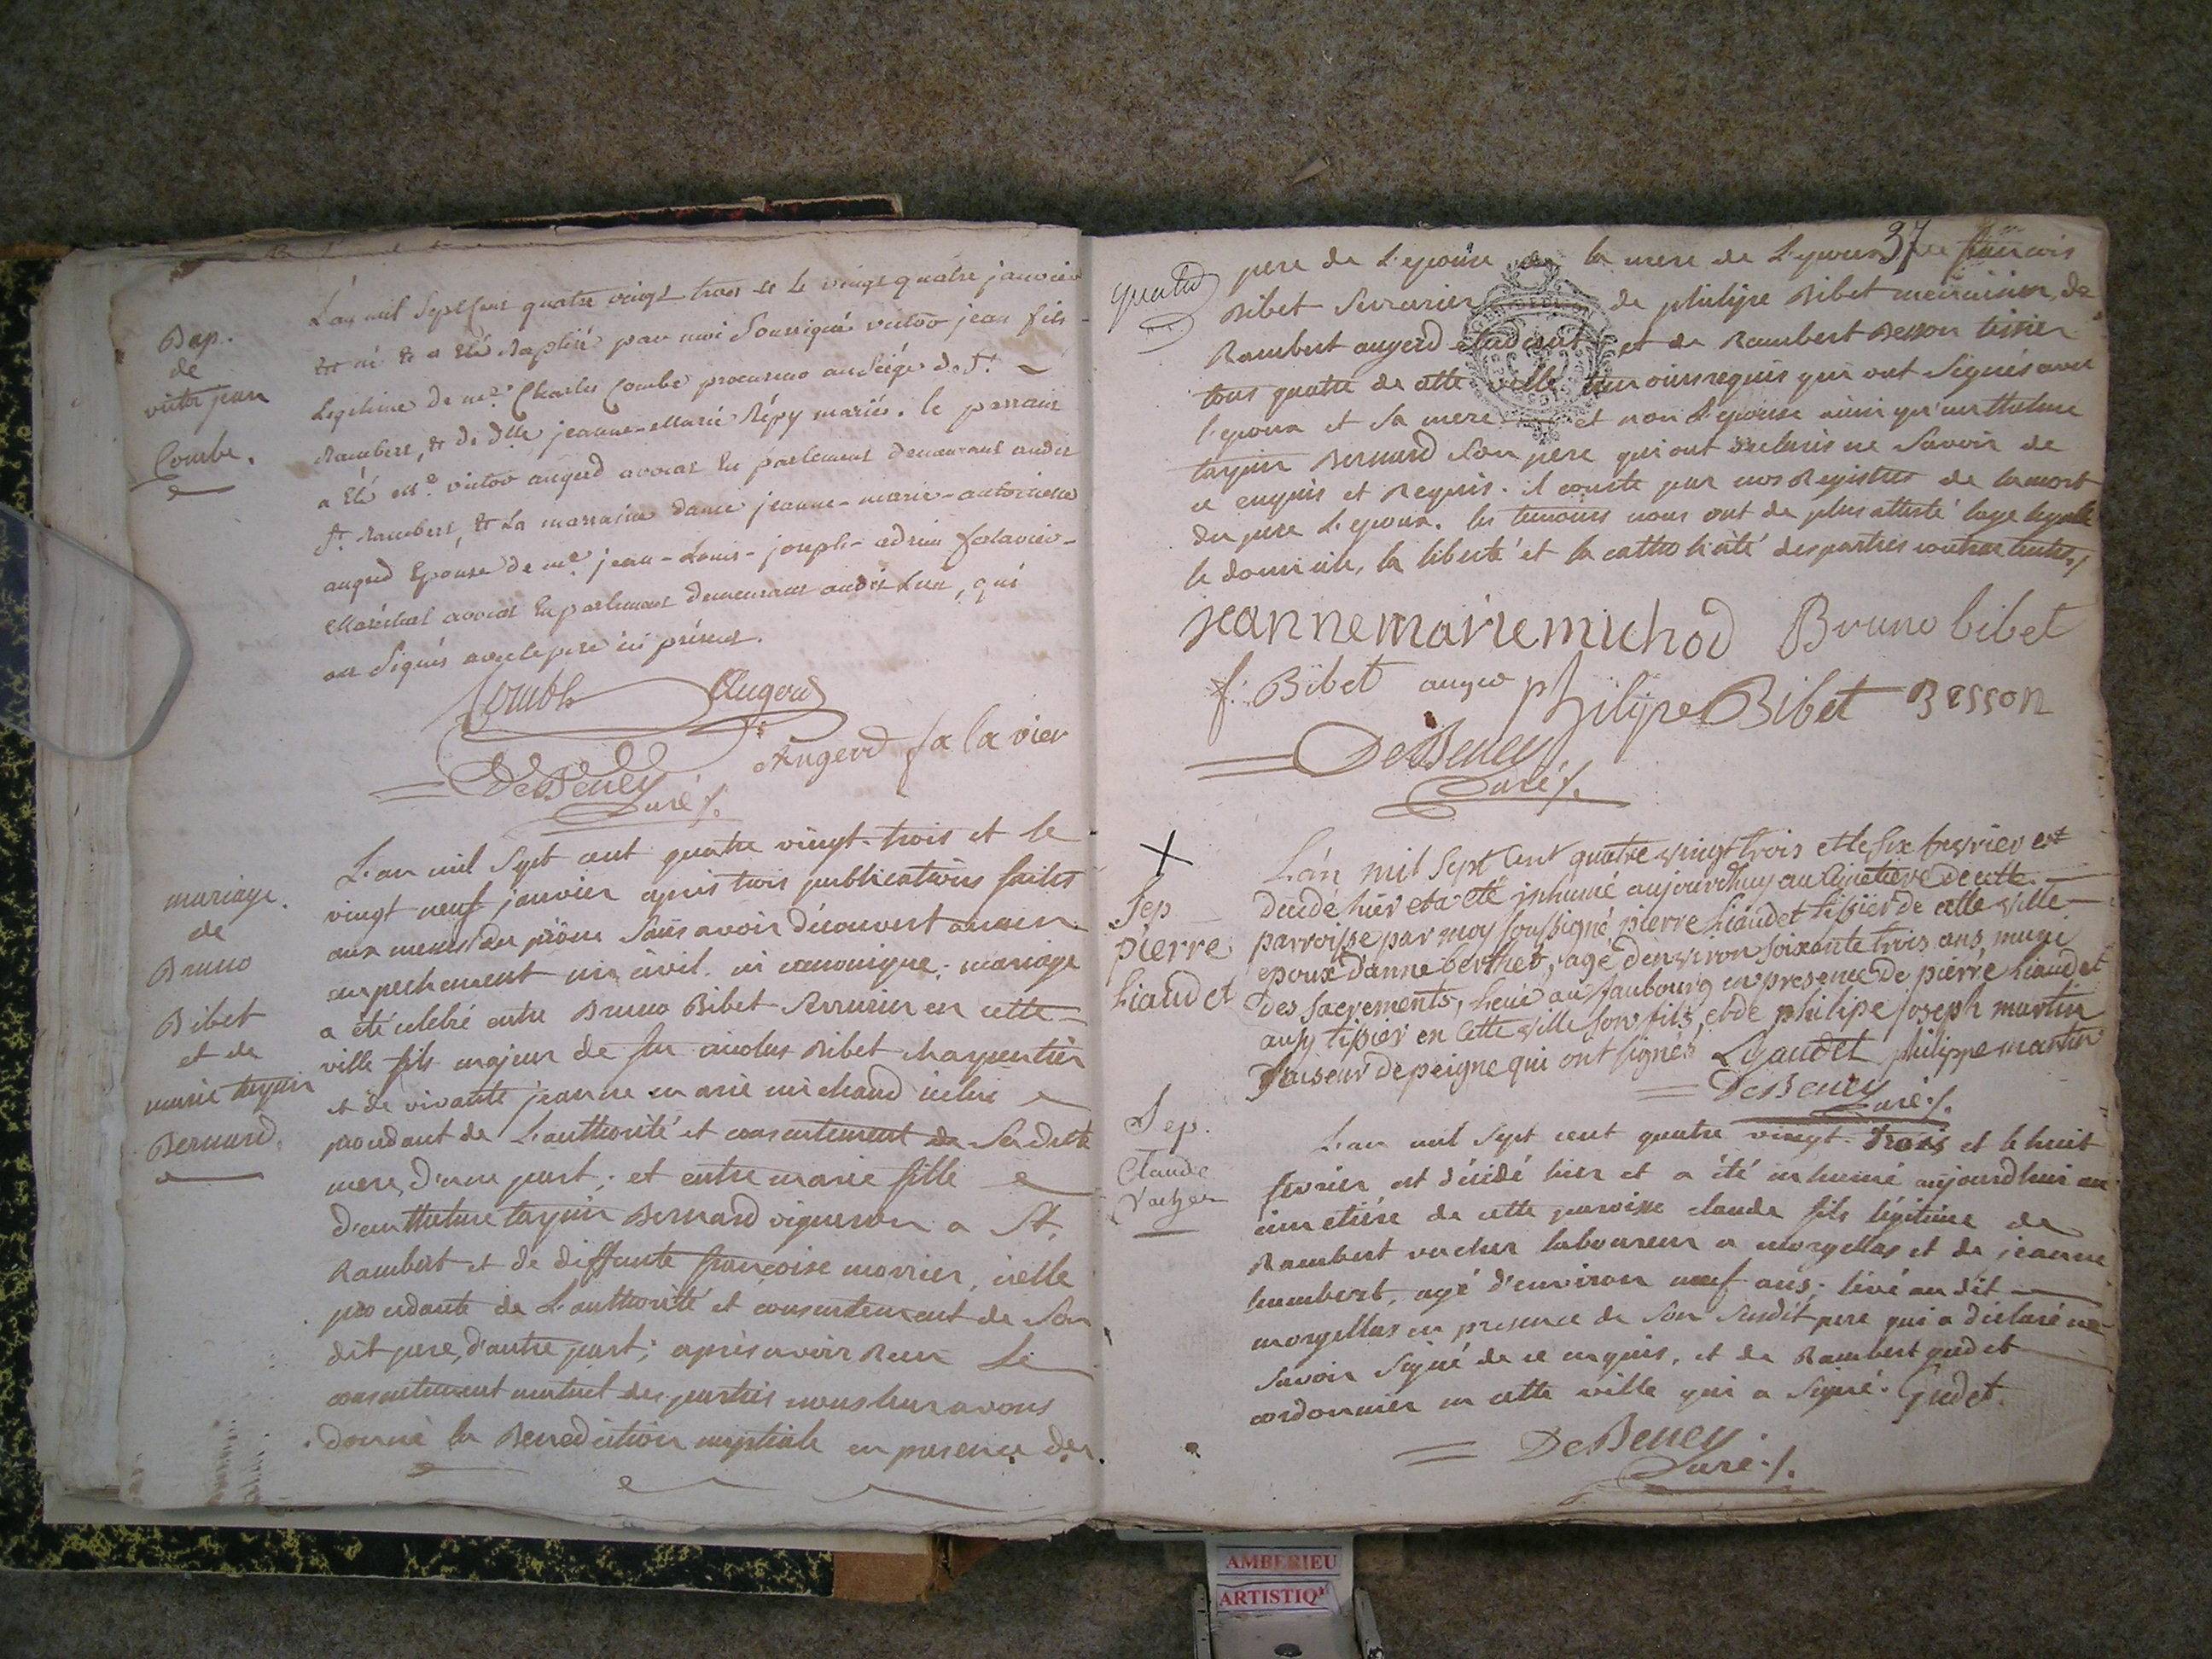 Bap.
de
victor jean
Combe.
L'an mil Sept Cent quatre vingt trois et le vingt quatre janvier
est né & a été Baptisé par moi Soussigné victor jean fils
Legitime de me. Charles Combe procureur au Siége de St.
Rambert, & de dlle jeanne-Marie Répy mariés. le parrain
a été me. victor augerd avocat En parlement demeurant audit
St. Rambert, & La marraine dame jeanne-marie-antoinette
augerd Epouse de me. jean-Louis-joseph-adrien falavier-
Maréchal avocat En parlement demeurant audit Lieu, qui
ont Signés avec le pere ici présent.
Combe Augerd
Augerd falavier
DeBeney
Curé
mariage.
de
Bruno
Bibet
et de
marie
Bernard.
L'an mil Sept cent quatre vingt-trois et le
vingt neuf janvier après trois publications faites
aux messes du prône Sans avoir découvert aucun
empechement ni civil. ni canonique; mariage
a été celebré entre Bruno Bibet Serrurier en cette
ville fils majeur de feu nicolas Bibet charpentier
et de vivante jeanne marie michaud icelui
procedant de L'authorité et consentement de Sa dite
mere, d'une part; et entre marie fille
d'anthelme Bernard vigneron a St.
Rambert et de deffunte françoise morrier, icelle
procedante de L'authorité et consentement de Son
dit pere, d'autre part; après avoir Recu Le
consentement mutuel des parties nous leur avons
donné la Benediction nuptiale en presence des
37
pere de L'epouse de la mere de L'epoux de françois
Bibet Serrurier de philipe Bibet menuisier, de
Rambert augerd etudiant et de Rambert Besson tissier
tous quatre de cette ville temoins requis qui ont Signés avec
l'epoux et Sa mere et non L'epouse ainsi qu'anthelme
Bernard Son pere qui ont declarés ne Savoir de
ce enquis et Requis. il conste par nos Registres de la mort
du pere L'epoux. les temoins nous ont de plus attesté l'age legale
le domicile, la liberté et la catholicité des parties contractantes,
jeanne marie michod Bruno bibet
f. Bibet augerd philipe Bibet Besson
DeBeney
Curé
Sep
pierre
Liaudet
L'an mil Sept Cent quatre vingt trois et le six fevrier est
decedé hier et a été inhumé aujourdhuy au Cimetiere de cette
parroisse par moy soussigné pierre Liaudet tissier de cette ville
epoux d'anne berthet, agé d'environ soixante trois ans muni
des sacrements, levé au faubourg en presence de pierre Liaudet
aussy tissier en cette ville son fils, et de philipe joseph martin
faiseur de peigne qui ont signés Lyaudet philippe martin
DeBeney
Curé
Sep.
Claude
Vacher
L'an mil Sept cent quatre vingt-trois et le huit
fevrier est décédé hier et a été inhumé aujourdhui au
cimetiére de cette paroisse claude fils légitime de
Rambert vacher laboureur a morgellas et de jeanne
humbert, agé d'environ neuf ans; levé au dit
morgellas en presence de Son Susdit pere qui a déclaré ne
Savoir Signé de ce enquis, et de Rambert gudet
cordonnier en cette ville qui a Signé. Gudet.
DeBeney
Curé
AMBERIEU
ARTISTIQ